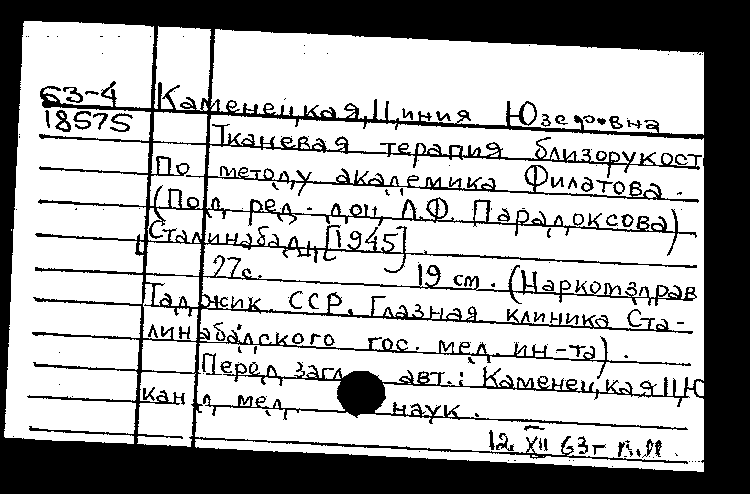 63-4 Каменецкая, Циния Юзефовна
18575 Тканевая терапия близорукост
По методу академика Филатова.
(Под ред. доц. Л.Ф. Парадоксова)
Сталинабад, [1945].
27с. 19 см. (Наркомздрав
Таджик. ССР. Глазная клиника Ста-
линабадского гос. мед. ин-та).
Перед загл. авт.: Каменецкая Ц,Ю
канд. мед. наук.
12. XII 63г